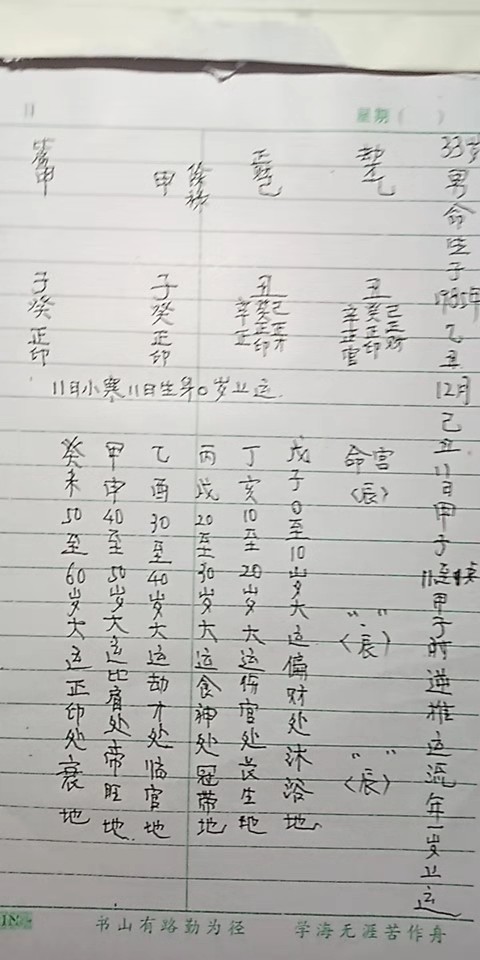 星期( )
33岁男命生于1985年乙丑12月己丑11日甲子11至1点甲子时逆推运流年一岁上运
劫才乙
正财己
徐彬
甲
甲
丑
己正财
癸正印
辛正官
丑
己正才
癸正印
辛正
子癸正印
子癸正印
11日小寒11日生身0岁上运.
命宫
〈辰〉
〃〃
〈辰〉
〃〃
〈辰〉
戊子0至10岁大运偏财处沐浴地
丁亥10至20岁大运伤官处长生地
丙戌20至30岁大运食神处冠带地
乙酉30至40岁大运劫才处临官地
甲申40至50岁大运比肩处帝旺地.
癸未50至60岁大运正印处衰地
书山有路勤为径
学海无涯苦作舟